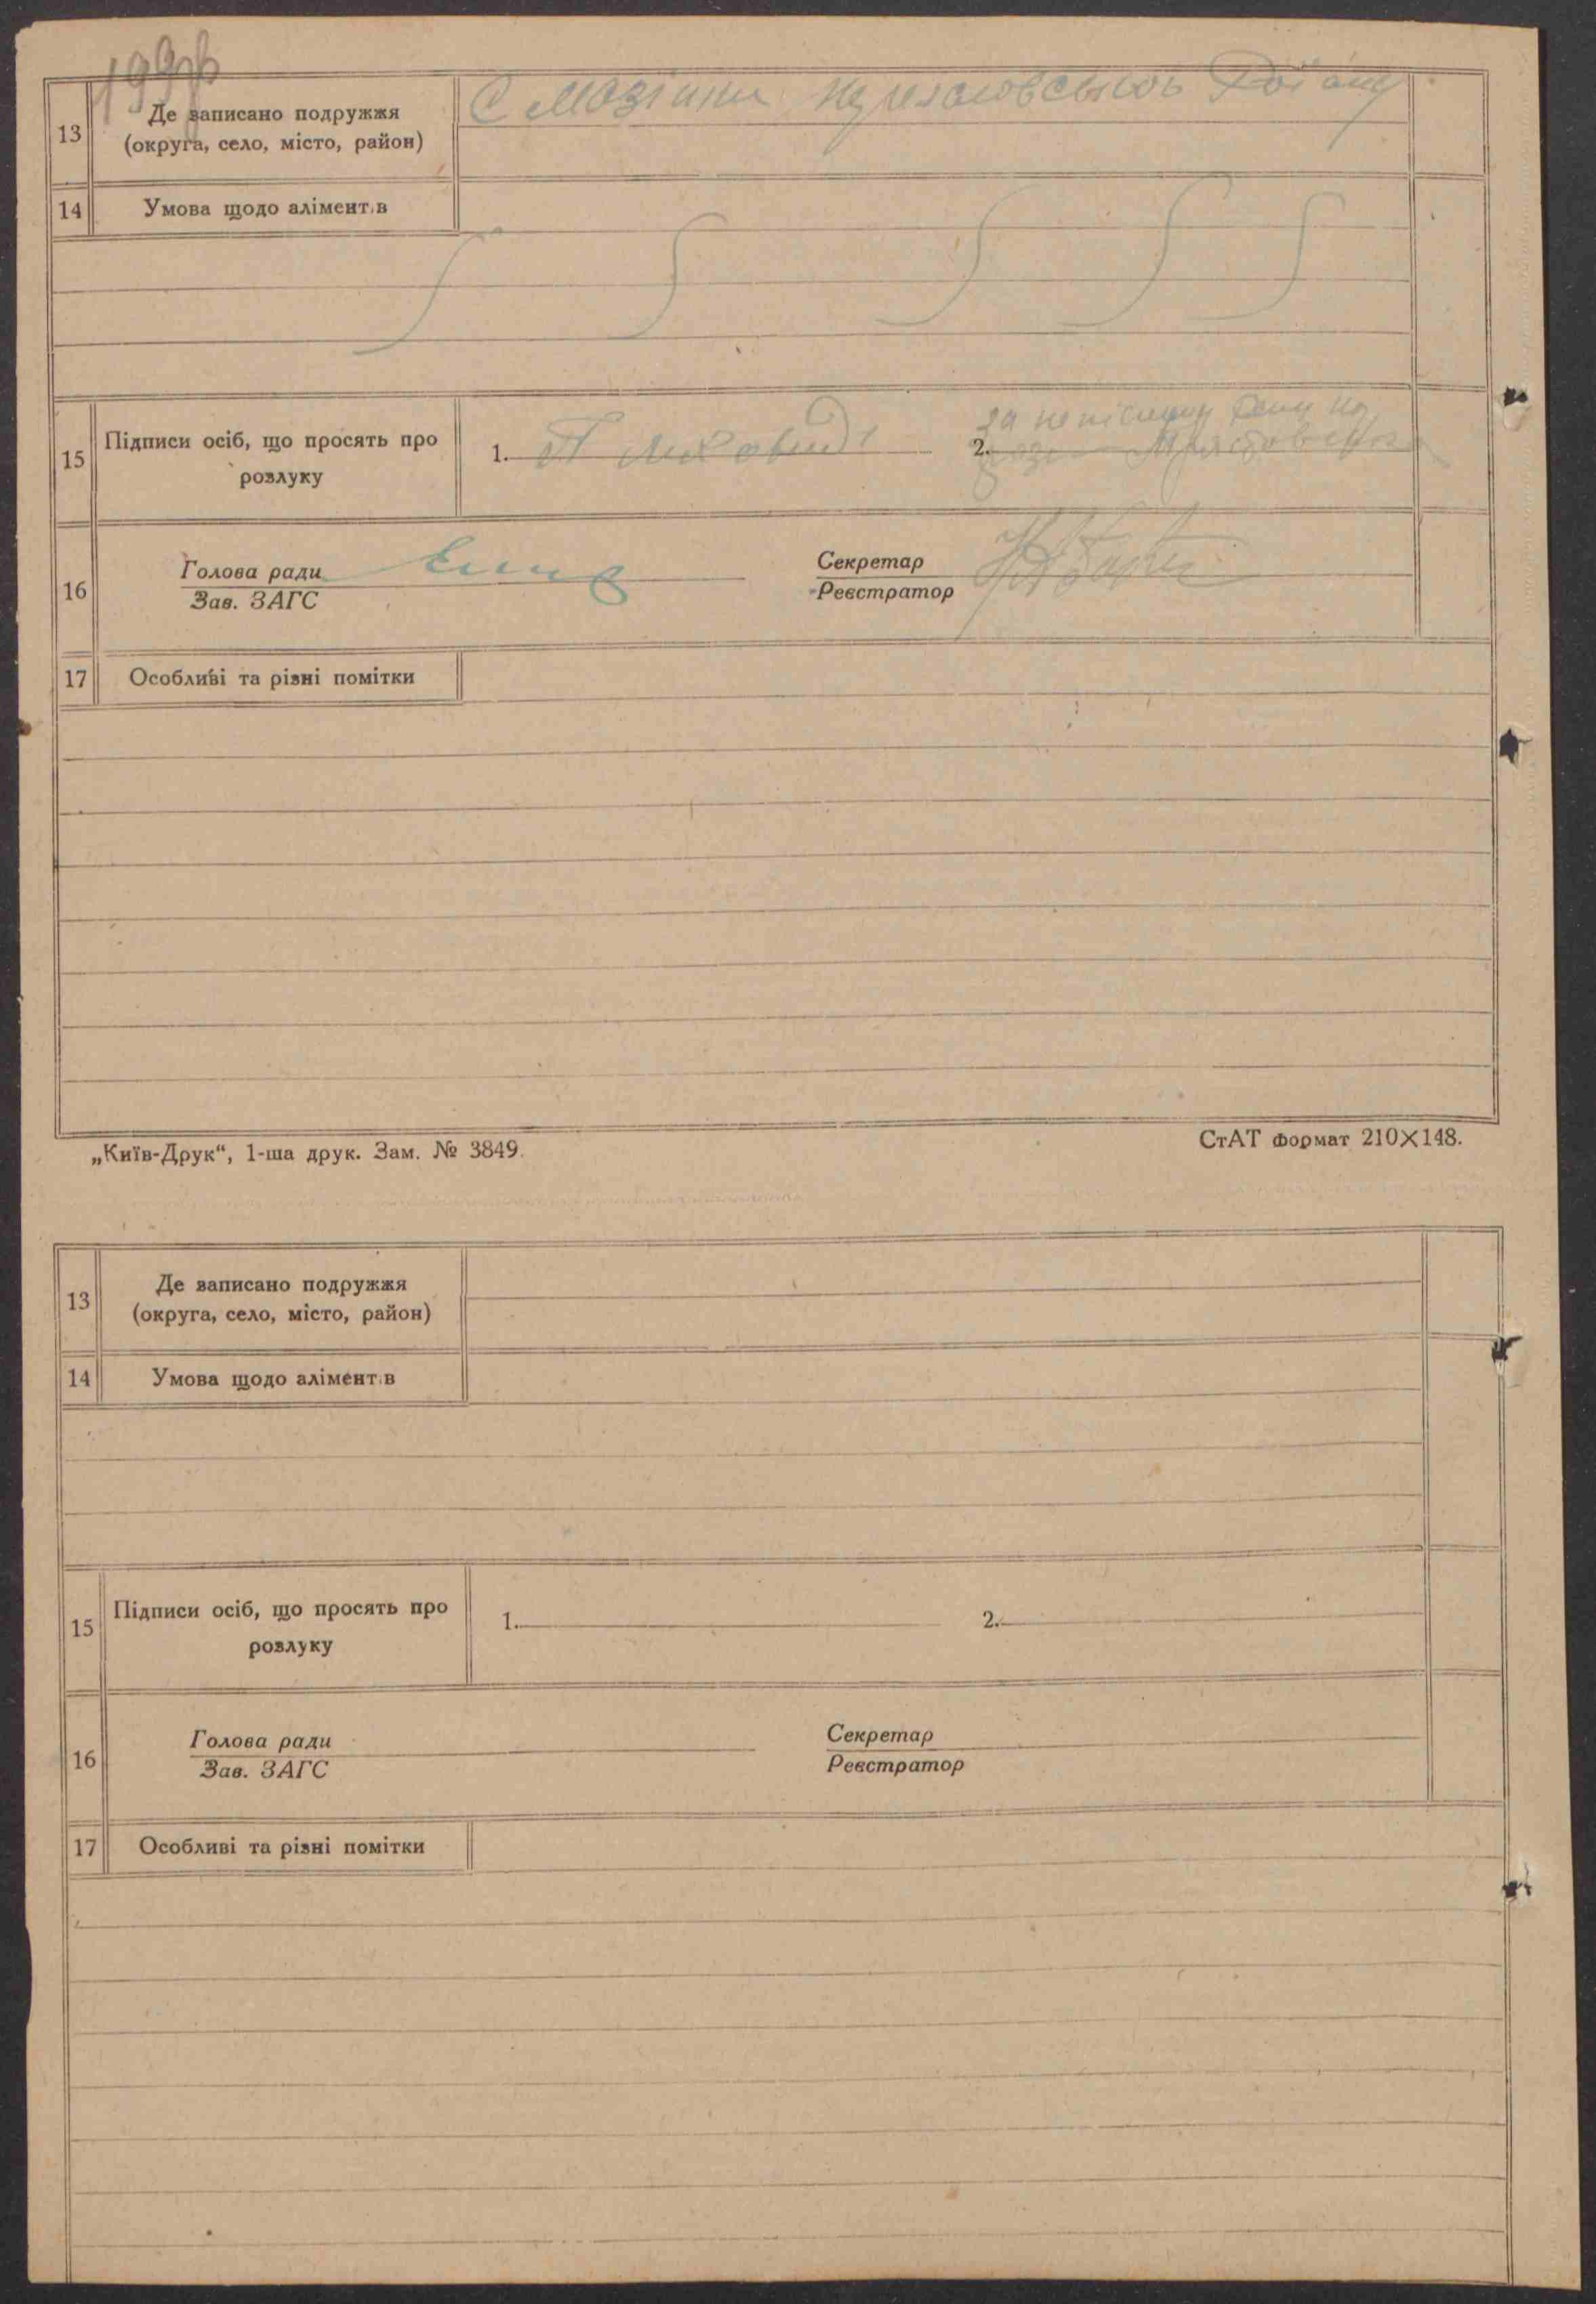 199зв
13
Де записано подружжя
(округа, село, місто, район)
С Мозінки Району
14
Умова щодо аліментів
15
Підписи осіб, що просять про
розлуку
1.
2. за неписьмен
16
Голова ради
Зав. ЗАГС
Секретар
Реєстратор
17
Особливі та різні помітки
„Київ-Друк“, 1-ша друк. Зам. № 3849.
СтАТ формат 210×148.
13
Де записано подружжя
(округа, село, місто, район)
14
Умова щодо аліментів
15
Підписи осіб, що просять про
розлуку
1.
2.
16
Голова ради
Зав. ЗАГС
Секретар
Реєстратор
17
Особливі та різні помітки